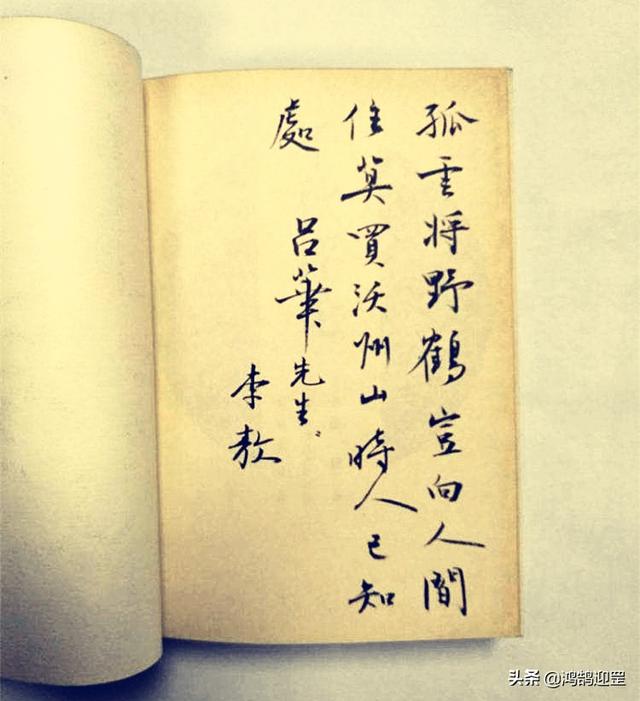 孤雲将野鶴豈向人間
住莫買沃州山時人已知
處
呂華先生
李敖
头条 @鸿鹄迎罡